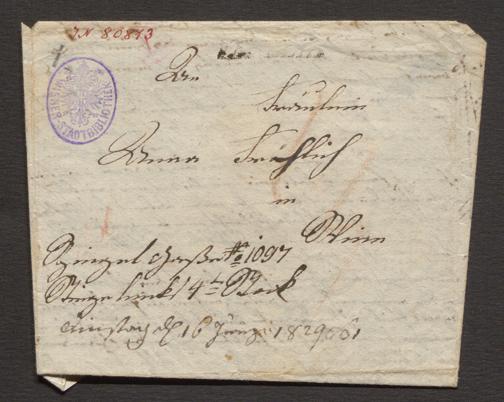 IN 80873
WIENER STADTBIBLIOTHEK
An
Fräulein
Anna Fröhlich
in
Wien
Spiegel Gasse № 1097
Stiege links 4ten Stock
den 16 Juny 1829